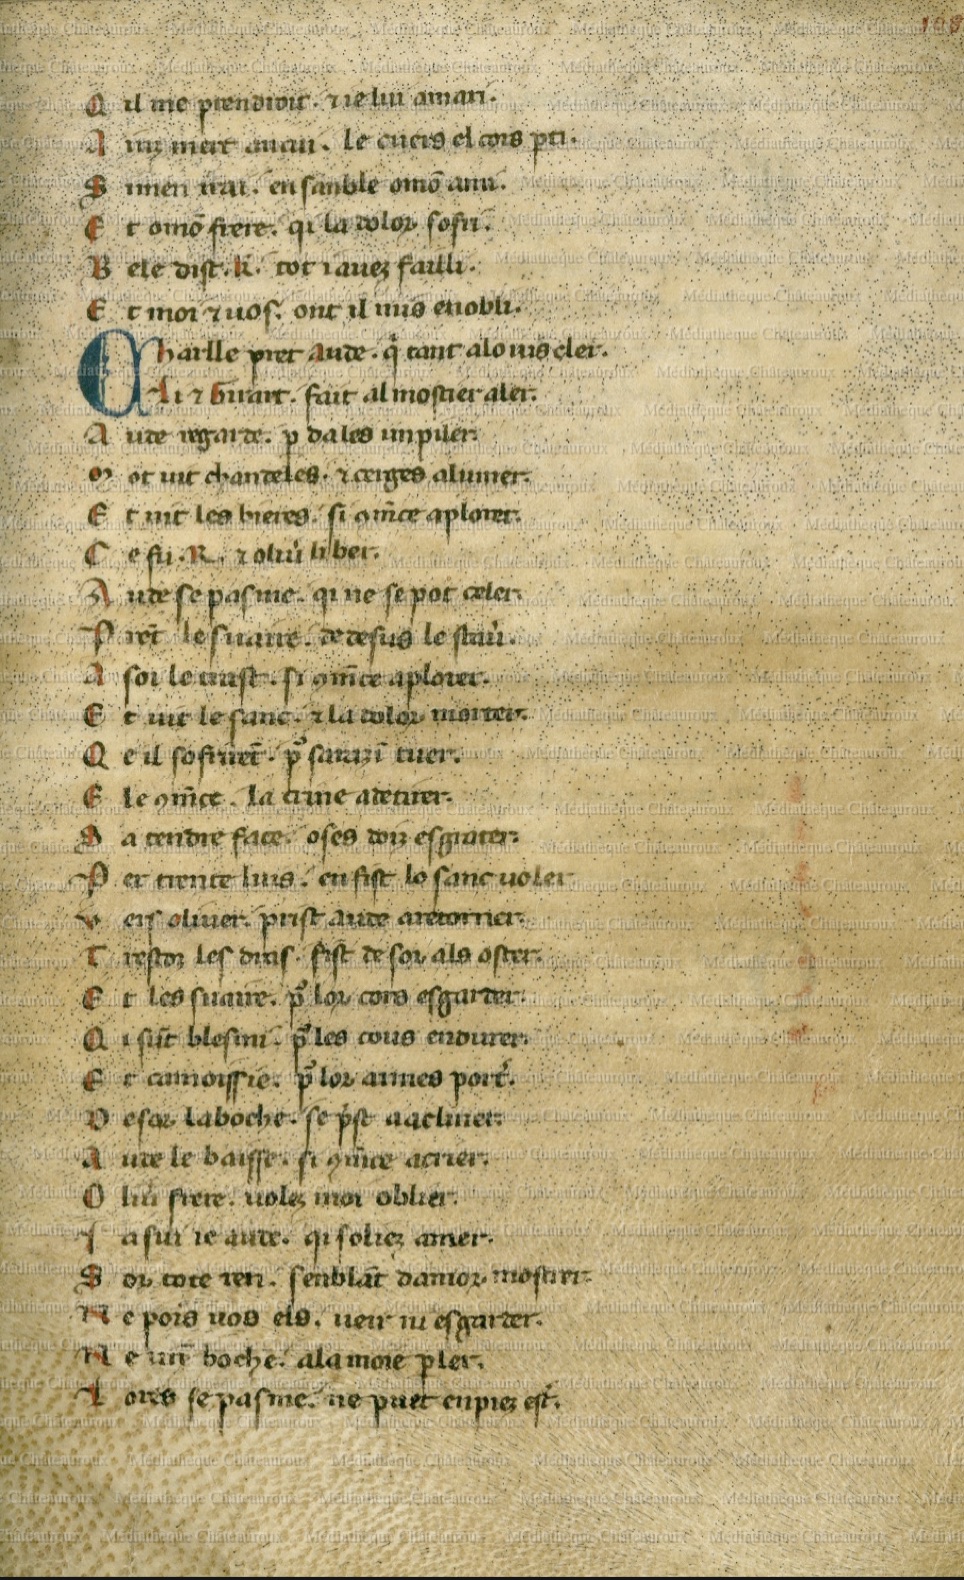 108
Q il me prendroit. ⁊ ie lui amari.
A mi mert auau. Le cuers el cors parti.
S imen irai. en sanble omō ami.
E t omō frere. qi la dolor sofri.
B ele dist .k. tot i auez failli.
E t moi ⁊ uos. ont il mis enobli.
C harlle pret Aude. q̄ tant a lo uis cler.
Li ⁊ Girart. fait al mostier aler.
A ude regarde. p dales un piler.
M ot uit chandeles. ⁊ cerges alumer.
E t uit les bieres. si ꝯm̄ce a plorer.
C e fu .R. ⁊ oliu̓ li ber.
A ude se pasme. qi ne se pot celer.
P ret̄ le suaire. de desus le
A soi le traist. si ꝯm̄ce a plorer.
E t uit le sanc. ⁊ la color
Q e il sofrirēt. p̄ sarazī tuer.
E le ꝯm̄ce. la crine a detirer.
S a tendre face. o ses doiz esgrater.
P er trente luis. en fist lo sanc uoler
V ers oliuer. prist aude a retorner.
T restoz les dras. fist de sor als oster.
E t les suaire. p̄ lor cors esgarder.
Q i sūt blesmi. p̄ les cous endurer.
E t camoissie. p̄ lor armes port̓.
D esor la boche. se p̓st a acliner.
A ude le baisse. si ꝯm̄ce a crier.
O liu̓ frere. uolez moi oblier.
J a sui ie aude. qi soliez amer.
S or tote ren. senblāt damor mostrer
N e pois uos els. ueir ni esgarder.
N e boche. a la moie p̱ler.
L ores se pasme. ne puet en piez est̓.